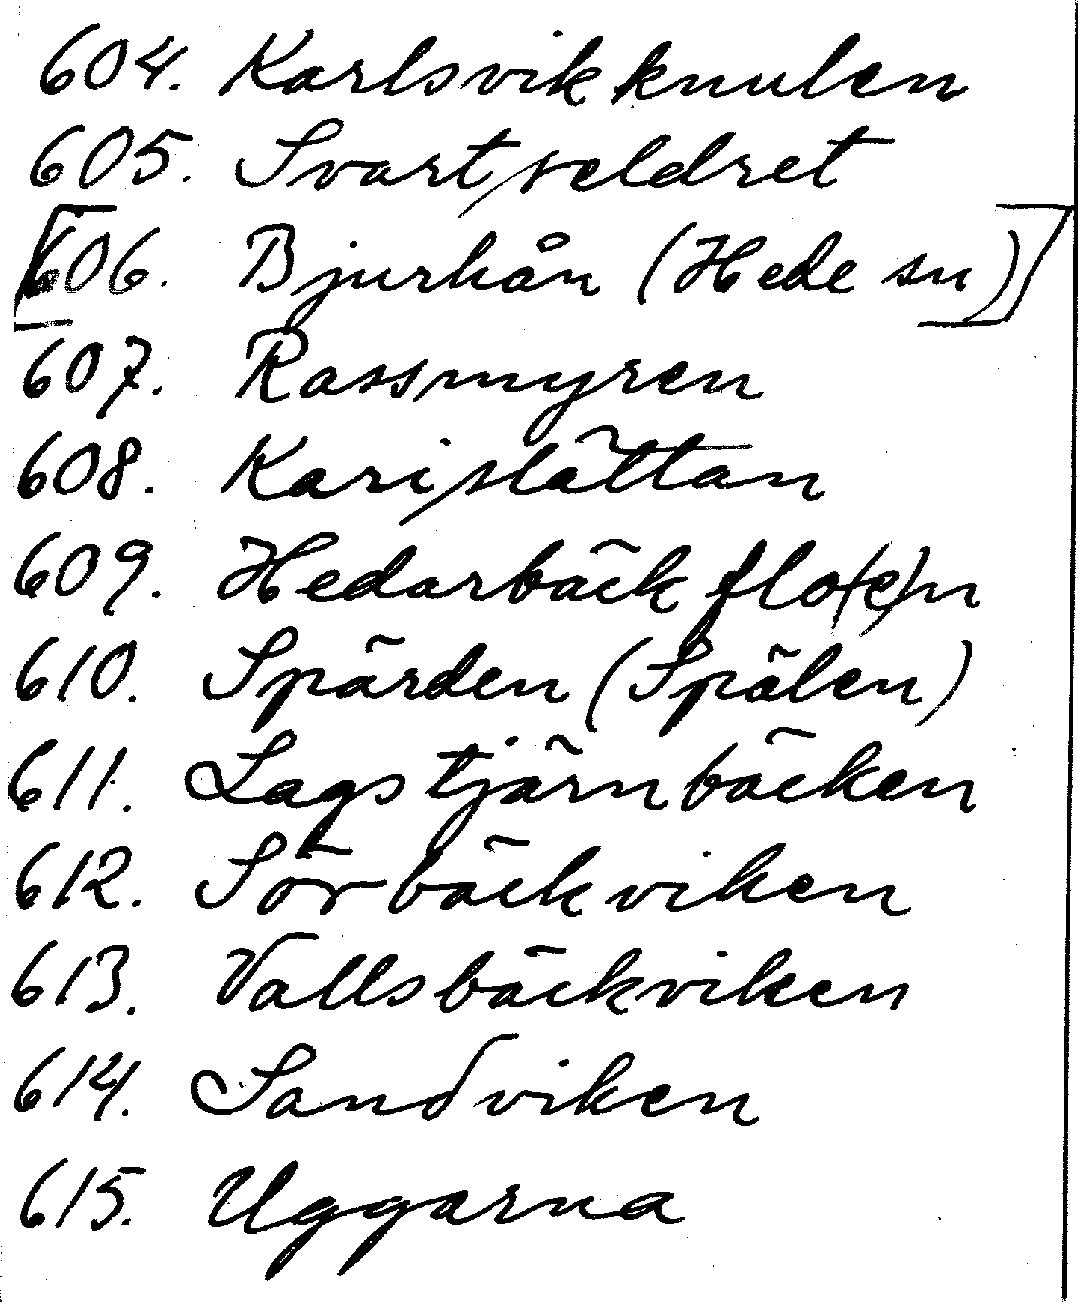 604. Karlsvikknulen
605. Svartseldret
[606. Bjurhån (Hede sn)]
607. Rassmyren
608. Karislättan
609. Hedarbäckflo(e)n
610. Spärden (Spälen)
611. Lagstjärnbäcken
612. Sörbäckviken
613. Vallsbäckviken
614. Sandviken
615. Uggarna